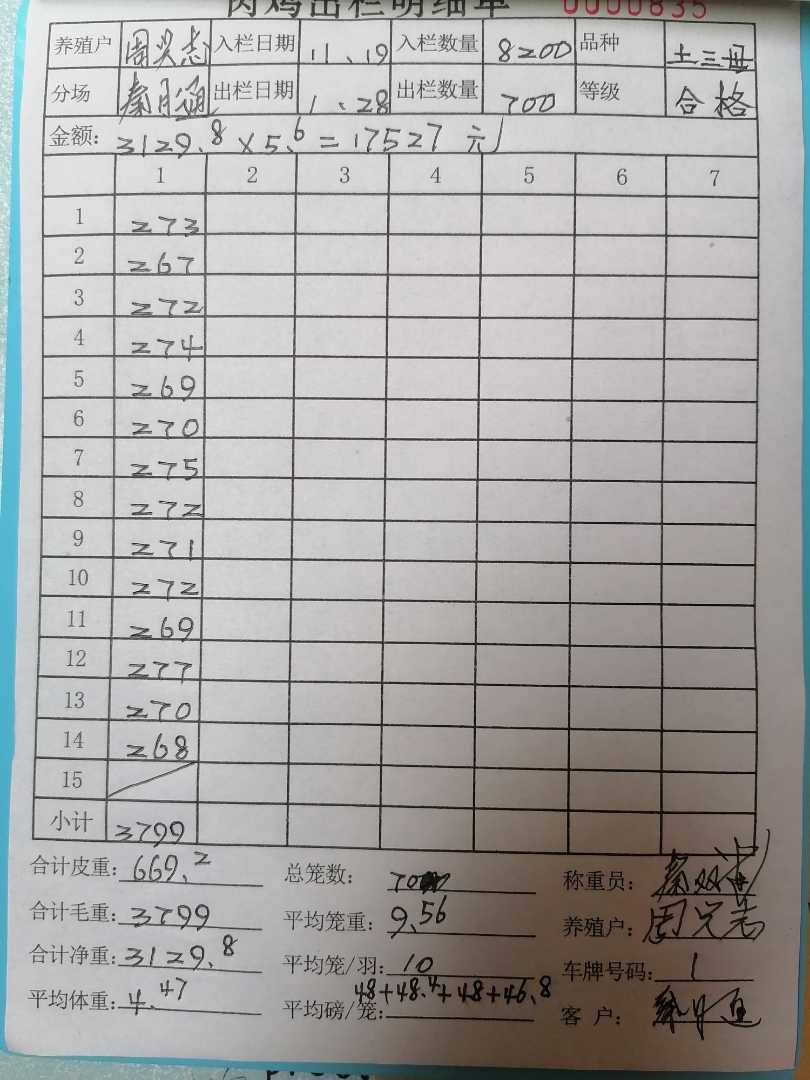 肉鸡出栏明细单 0000835
养殖户 周兴志 入栏日期 11、19 入栏数量 8200 品种 土三母
分场 出栏日期 1、28 出栏数量 700 等级 合格
金额: 3129.8×5.6=17527元
1 2 3 4 5 6 7
1 273
2 267
3 272
4 274
5 269
6 270
7 275
8 272
9 271
10 272
11 269
12 277
13 270
14 268
15
小计 3799
合计皮重: 669.2 总笼数: 70 称重员:
合计毛重: 3799 平均笼重: 9.56 养殖户: 周兴志
合计净重: 3129.8 平均笼/羽: 10 车牌号码: 1
平均体重: 4.47 平均磅/笼: 48+48.4+48+46.8 客户: